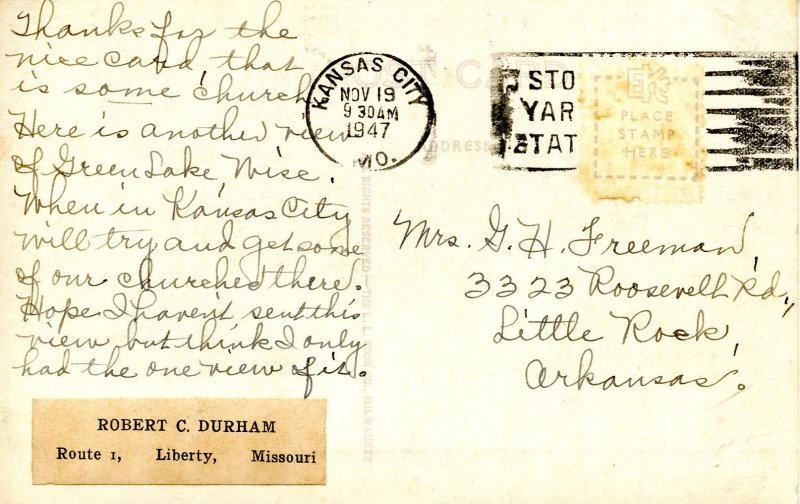 Thanks for the
nice card that
is some church.
Here is another view
of Green Lake, Wisc.
When in Kansas City
will try and get some
of our churches there.
Hope I haven't sent this
view, but think I only
had the one view of it.
ROBERT C. DURHAM
Route 1, Liberty, Missouri
KANSAS CITY
NOV 19
9 30 AM
1947
MO.
CARD
ADDRESS
STO
YAR
STAT
EKC
PLACE
STAMP
HERE
Mrs. G. H. Freeman,
3323 Roosevelt Rd.,
Little Rock,
Arkansas.
RIGHTS RESERVED — THE L. L. COOK CO., MILWAUKEE